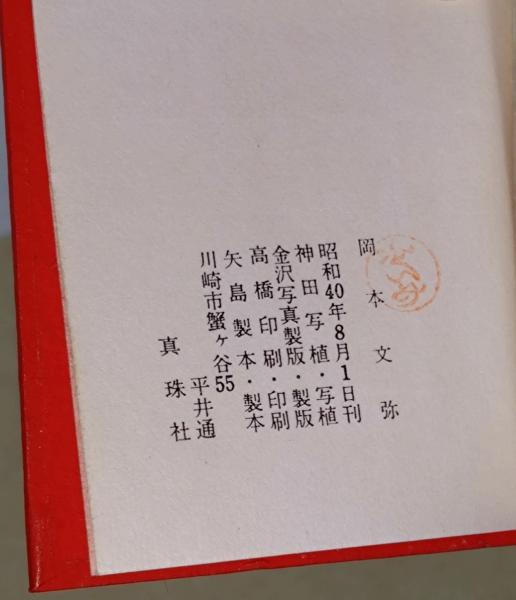 岡本文弥
昭和40年8月1日刊
神田写植・写植
金沢写真製版・製版
高橋印刷・印刷
矢島製本・製本
川崎市蟹ヶ谷55
平井通
真珠社